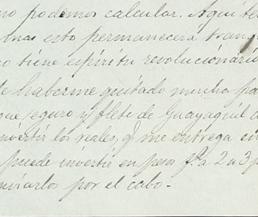 no podemos calcular. Aquí
esto permanecerá
no tiene espíritu revolucionario
haberme quitado mucha
que seguro y flete de Guayaquil
los reales, q me entrega
puede invertir en 2 a 3
enviarlos por el cabo.